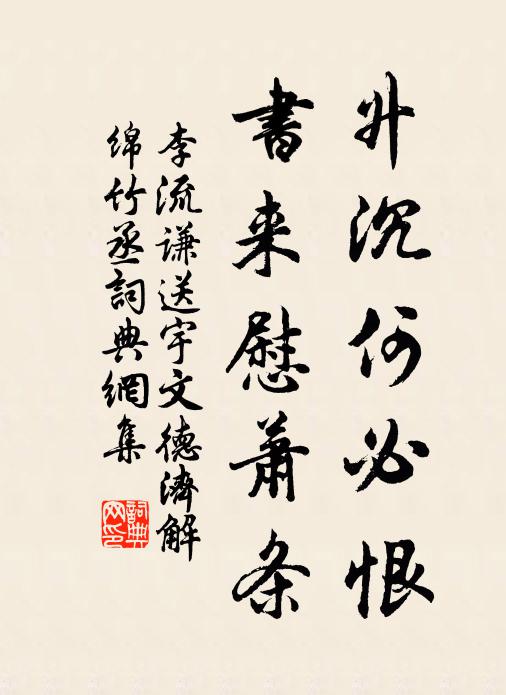 升沉何必恨
書来慰蕭条
李流謙送宇文德濟解
綿竹丞詞典網集
詞典
网印